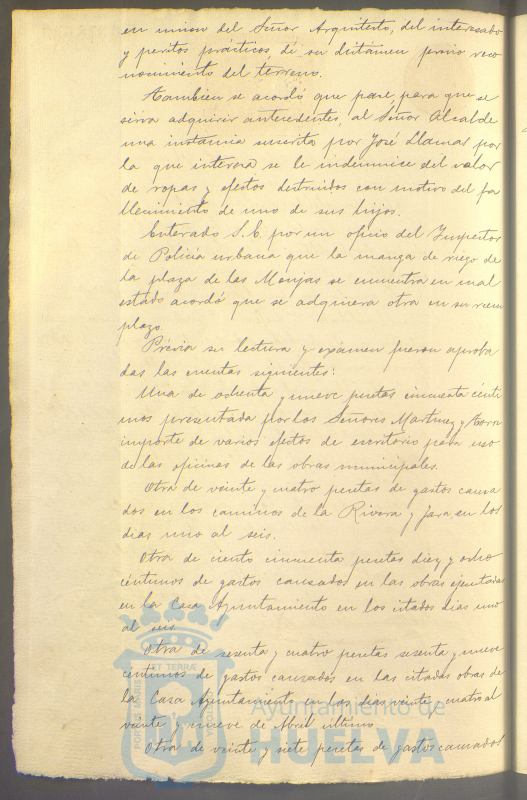 en union del Señor Arquitecto, del interesado
y peritos prácticos dé su dictámen previo reco
nocimiento del terreno.
Tambien se acordó que pase para que se
sirva adquirir antecedentes, al Señor Alcalde
una instancia suscrita por José Llamar por
la que interesa se le indemnice del valor
de ropas y efectos destruidos con motivo del fa
llecimiento de uno de sus hijos.
Enterado S.E. por un oficio del Inspector
de Policía urbana que la manga de riego de
la plaza de las Monjas se encuentra en mal
estado acordó que se adquiera otra en su reem
plazo.
Prévia su lectura y exámen fueron aproba
das las cuentas siguientes:
Una de ochenta y nueve pesetas cincuenta cénti
mos presentada por los Señores Martinez y
importe de varios efectos de escritorio para uso
de las oficinas de las obras municipales.
Otra de veinte y cuatro pesetas de gastos causa
dos en los caminos de la Rivera y Jara, en los
dias uno al seis.
Otra de ciento cincuenta pesetas diez y ocho
céntimos de gastos causados en las obras ejecutadas
en la Casa Ayuntamiento en los citados dias uno
al seis.
Otra de sesenta y cuatro pesetas sesenta y nueve
céntimos de gastos causados en las citadas obras de
la Casa Ayuntamiento en los dias veinte y cuatro al
veinte y nueve de Abril último
Otra de veinte y siete pesetas de gastos causados
Ayuntamiento de
HUELVA